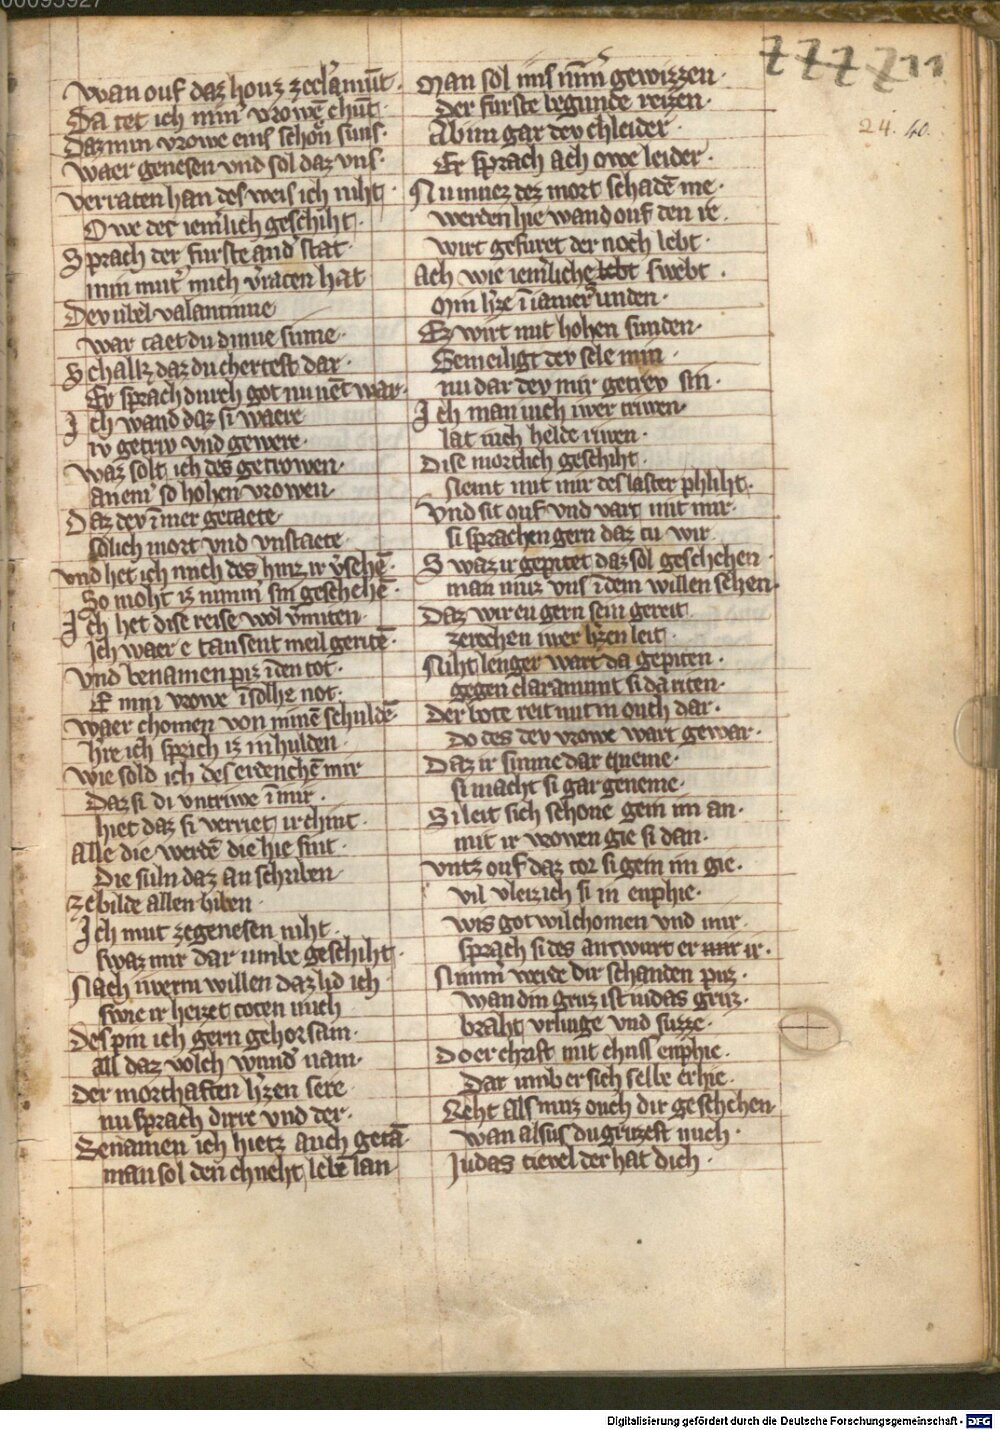 00095927
777711
24. 40.
wan ouf daz houz zeclamūt·
Da tet ich min' vrowē chūt·
Daz min vrowe eins schōn suns·
waer genesen vnd sol daz vns·
verraten han des weis ich niht·
Owe der iem'lich geschiht·
Sprach der furste and' stat·
min mut' mich v'raten hat
Dev vbel valantinne
war taet du dinne sinne·
Schalkz daz du chertest dar·
Er sprach durch got nu nēt war·
Ich wand daz si waere·
iv getriv vnd gewere·
waz solt ich des getrowen·
an em' so hohen vrowen·
Daz dev īmer getaete·
sölich mort vnd vnstaete·
vnd het ich mich des hinz ir v'sehē·
So moht iz nimm' sin geschehē·
Ich het dise reise wol v'miten·
Ich waer e tausent meil geritē·
vnd benamen piz īden tot·
E min vrowe īsolhe not·
waer chomen von minē schuldē·
h're ich sprich iz in hulden·
wie sold ich des eidenchē mir
Daz si di vntriwe ī mir·
hiet daz si verriet ir chint·
Alle die werdē die hie sint·
Die suln daz an schriben
ze bilde allen biben·
Ich mut ze genesen niht·
swaz mir dar umbe geschiht·
Nach iwerm willen daz lid ich·
swie ir heizet toten mich
Des pin ich gern gehorsam·
all daz volch wund' nam·
der morthaften h'zen sere·
nu sprach dirre vnd der·
Benamen ich hietz auch getā·
man sol den chneht lebē lan·
Man sol ims nīm' gewizzen·
der furste begunde reizen·
Ab im gar dev chleider·
Er sprach ach owe leider·
Nu muez dez mort schadē me·
werden hie wand ouf den re·
wirt gefuret der noch lebt·
Ach wie iem'liche lebt swebt·
Min h'ze ī iamer unden·
Ez wirt mit hohen sunden·
Gemeiligt dev sele min·
nu dar dev mir getrev sin·
Ich man iuch iwer triwen·
lat iuch helde riwen·
Dise mortlich geschiht·
Nemt mit mir des laster phliht·
Vnd sit ouf vnd vart mit mir·
si sprachen gern daz tu wir
Swaz ir gepitet daz sol geschehen·
man muz vns ī dem willen sehen·
Daz wir eu gern sein gereit·
zerechen iwer h'zen leit·
Niht lenger wart da gepiten·
gegen claramunt si da riten·
Der bote reit mit in ouch dar·
Do des dev vrowe wart gewar·
Daz ir sunne dar queme·
si macht si gar geneme·
Si leit sich schone gein im an·
mit ir vrowen gie si dan·
vntz ouf daz tor si gein im gie·
vil vleizich si in enphie·
wis got wilchomen vnd mir·
sprach si des antwurt er mir ir·
Nimm' werde dir schanden puz·
wan din gruz ist iudas gruz·
braht vrluge vnd suzze·
Do er christ mit chuss enphie·
Dar umb er sich selbe erhie·
Reht als muz ouch dir geschehen·
wan alsus du gruzest mich·
Judas tievel der hat dich·
Digitalisierung gefördert durch die Deutsche Forschungsgemeinschaft - DFG